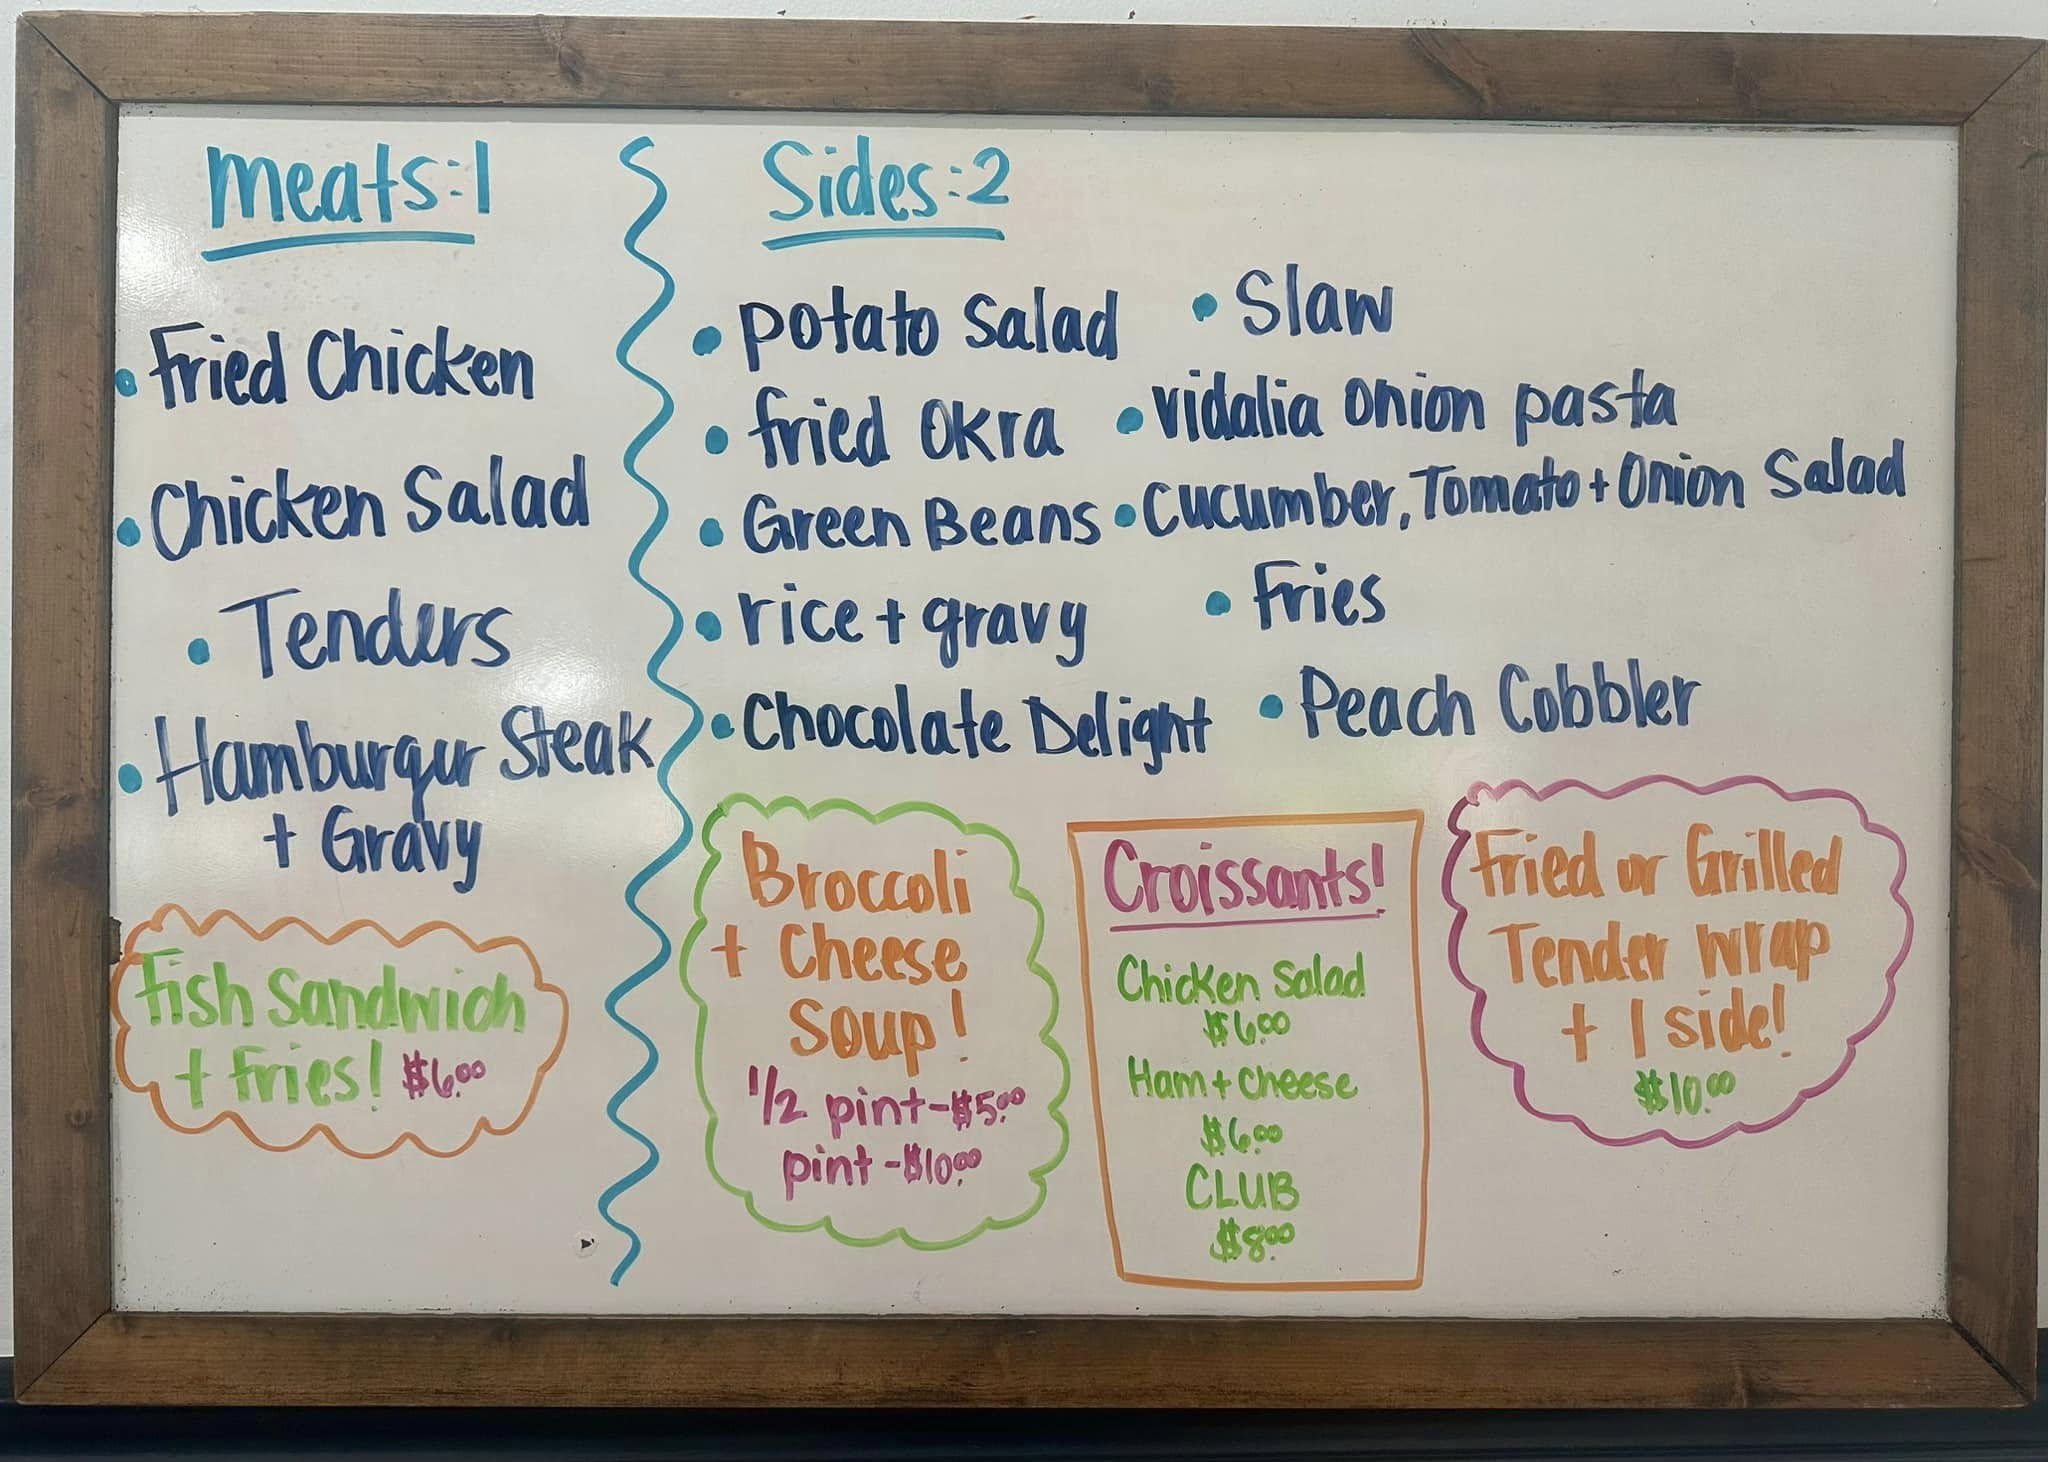 Meats:1
• Fried Chicken
• Chicken Salad
• Tenders
• Hamburger Steak
+ Gravy
Fish Sandwich
+ Fries! $6.00
Sides:2
• Potato Salad
• Fried Okra
• Green Beans
• rice + gravy
• Chocolate Delight
• Slaw
• Vidalia Onion pasta
• Cucumber, Tomato + Onion Salad
• Fries
• Peach Cobbler
Broccoli
+ Cheese
Soup!
1/2 pint - $5.00
pint - $10.00
Croissants!
Chicken Salad
$6.00
Ham + Cheese
$6.00
CLUB
$8.00
Fried or Grilled
Tender Wrap
+ 1 side!
$10.00